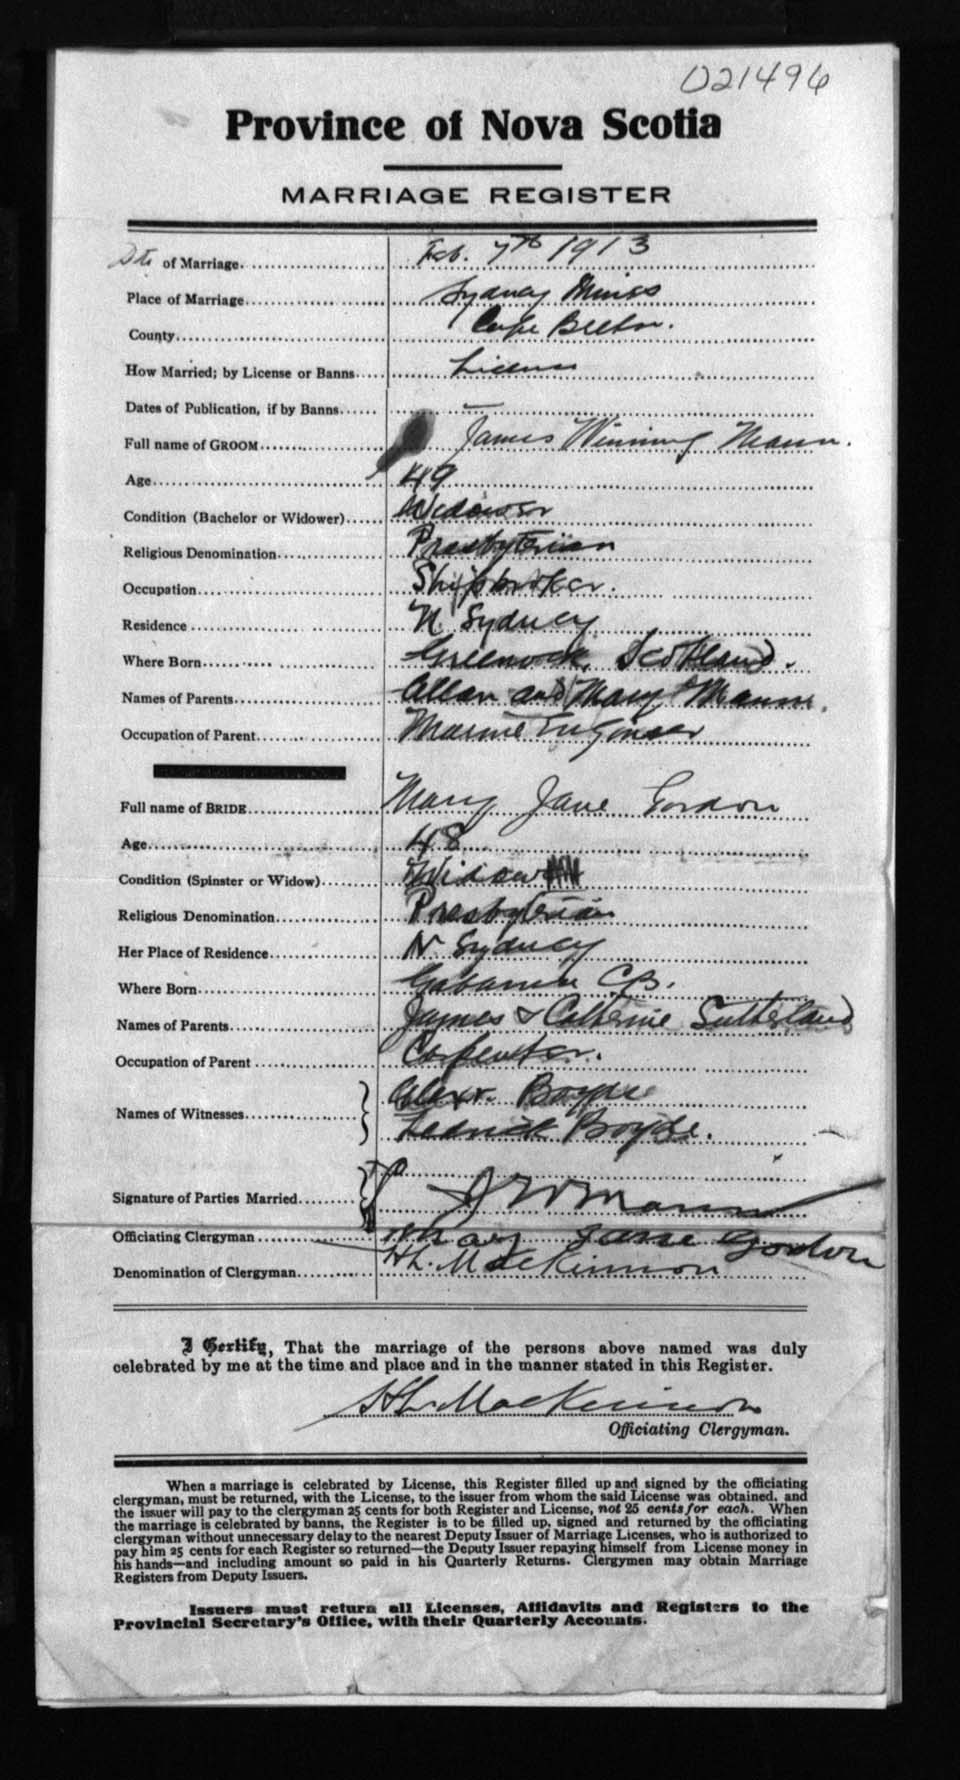 021496
Province of Nova Scotia
MARRIAGE REGISTER
Date of Marriage Feb. 7th 1913
Place of Marriage Sydney Mines
County Cape Breton.
How Married; by License or Banns License
Dates of Publication, if by Banns
Full name of GROOM James Winning Mann.
Age 49
Condition (Bachelor or Widower) Widower
Religious Denomination Presbyterian
Occupation Shipbroker.
Residence N. Sydney
Where Born Greenock, Scotland.
Names of Parents Allan and Mary Mann.
Occupation of Parent Marine Engineer
Full name of BRIDE Mary Jane Gordon
Age 48
Condition (Spinster or Widow) Widow
Religious Denomination Presbyterian
Her Place of Residence N Sydney
Where Born Gabarus C.B.
Names of Parents James & Catherine Sutherland
Occupation of Parent Carpenter.
Names of Witnesses Alexr.
Signature of Parties Married J W Mann
Officiating Clergyman Mary Jane Gordon
Denomination of Clergyman H.L. MacKinnon
I Certify, That the marriage of the persons above named was duly
celebrated by me at the time and place and in the manner stated in this Register.
H.L. MacKinnon
Officiating Clergyman.
When a marriage is celebrated by License, this Register filled up and signed by the officiating
clergyman, must be returned, with the License, to the issuer from whom the said License was obtained, and
the issuer will pay to the clergyman 25 cents for both Register and License, not 25 cents for each. When
the marriage is celebrated by banns, the Register is to be filled up, signed and returned by the officiating
clergyman without unnecessary delay to the nearest Deputy Issuer of Marriage Licenses, who is authorized to
pay him 25 cents for each Register so returned—the Deputy Issuer repaying himself from License money in
his hands—and including amount so paid in his Quarterly Returns. Clergymen may obtain Marriage
Registers from Deputy Issuers.
Issuers must return all Licenses, Affidavits and Registers to the
Provincial Secretary's Office, with their Quarterly Accounts.